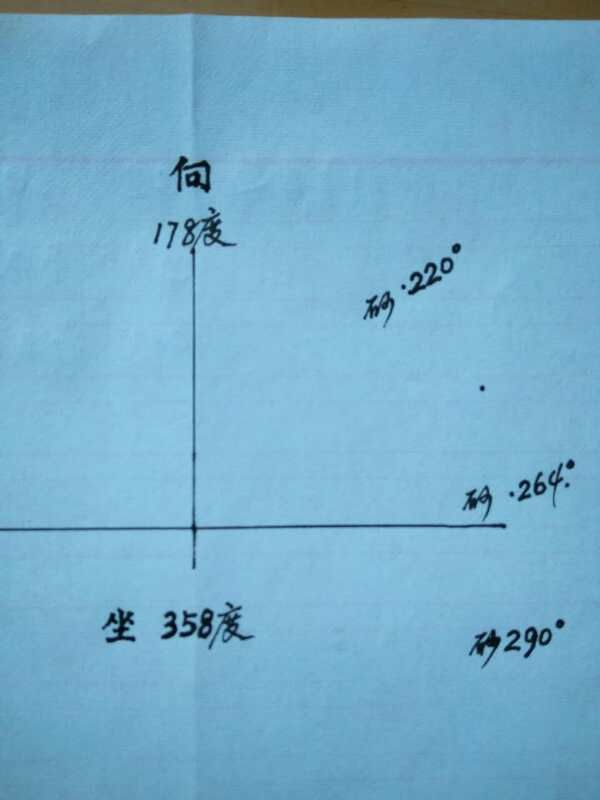 向
178度
砂·220°
砂·264°
坐 358度
砂290°